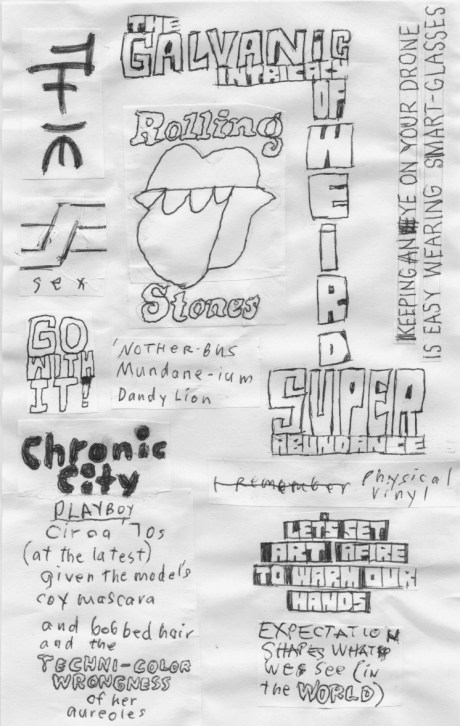 THE
THE
GALVANIC
INTRICACY
OF
WEIRD
SUPER
ABUNDANCE
Rolling
Stones
KEEPING AN EYE ON YOUR DRONE
IS EASY WEARING SMART-GLASSES
sex
GO
WITH
IT!
'NOTHER-BUS
Mundane-ium
Dandy Lion
Chronic
City
I remember Physical
Vinyl
PLAYBOY
Circa 70s
(at the latest)
given the model's
coy mascara
and bobbed hair
and the
TECHNI-COLOR
WRONGNESS
of her
aureoles
LET'S SET
ART AFIRE
TO WARM OUR
HANDS
EXPECTATION
SHAPES WHAT
WE SEE (in
the WORLD)